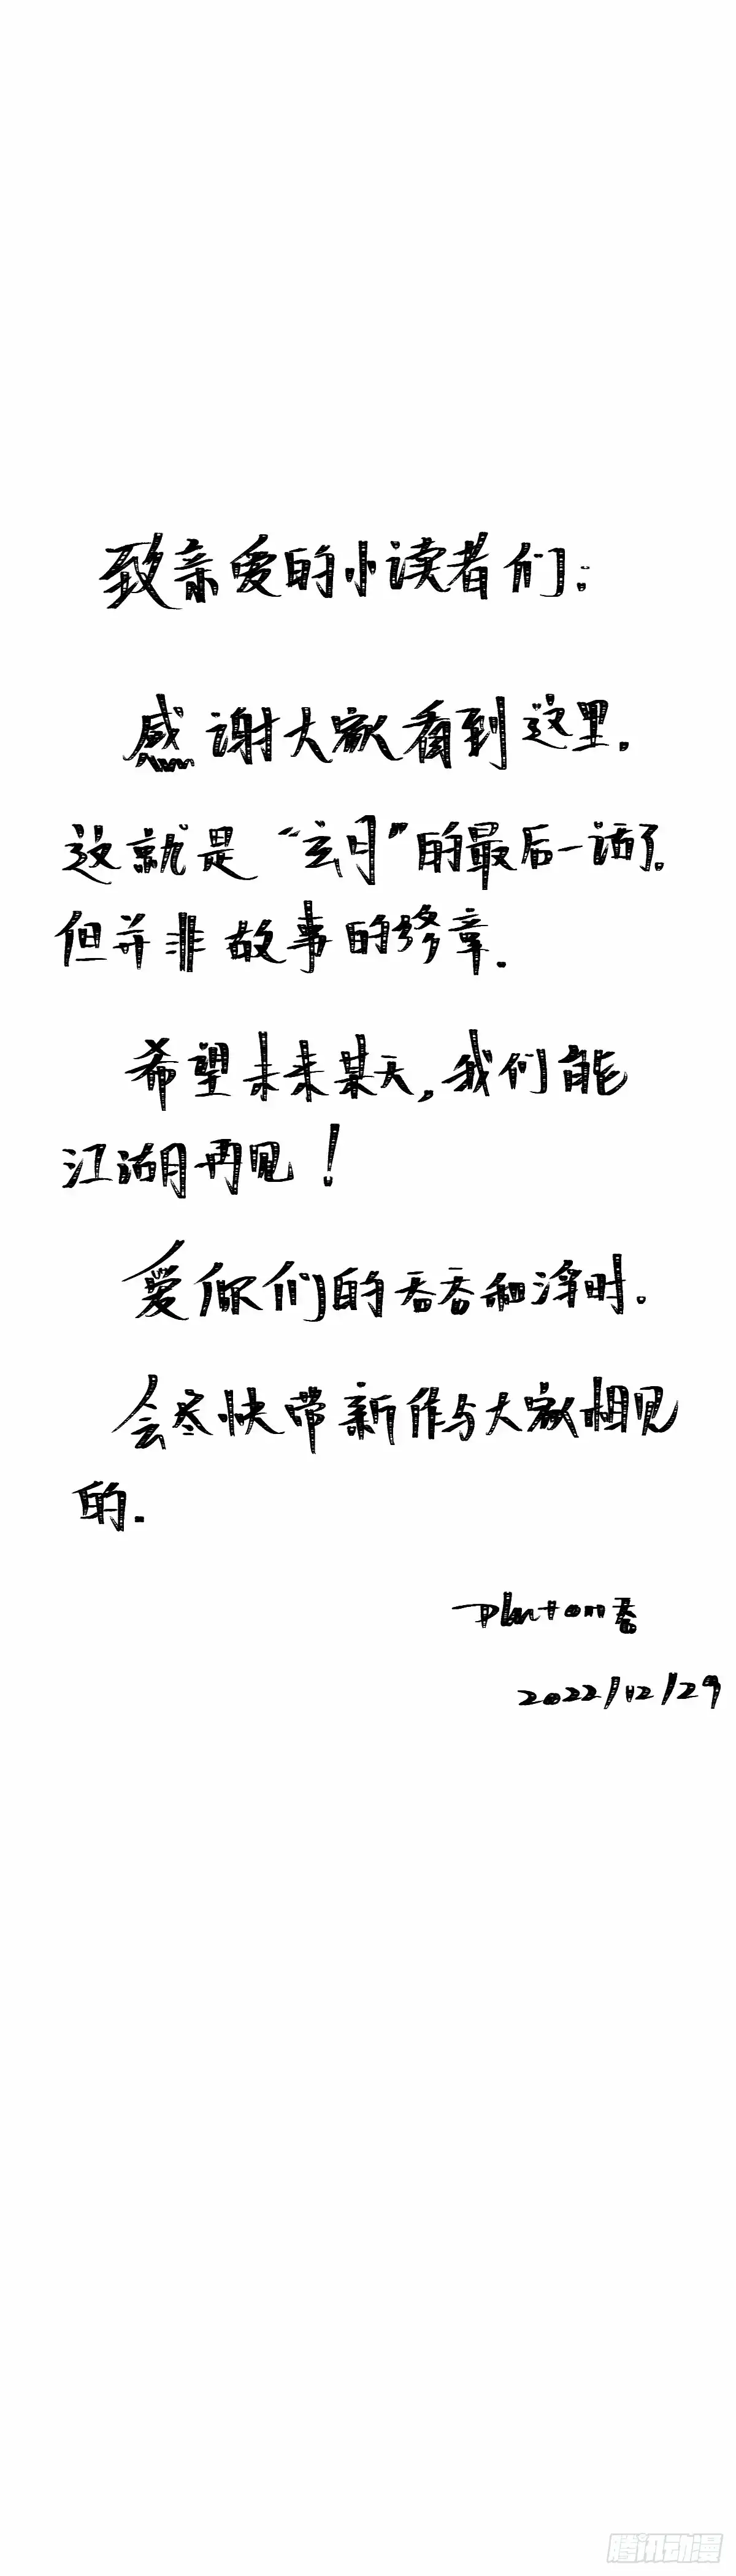 致亲爱的小读者们：
感谢大家看到这里。
这就是“玄月”的最后一话了。
但并非故事的终章.
希望未来某天,我们能
江湖再见！
爱你们的吞吞和浮时.
会尽快带新作与大家相见
的.
Pluton吞
2022/12/29
腾讯动漫